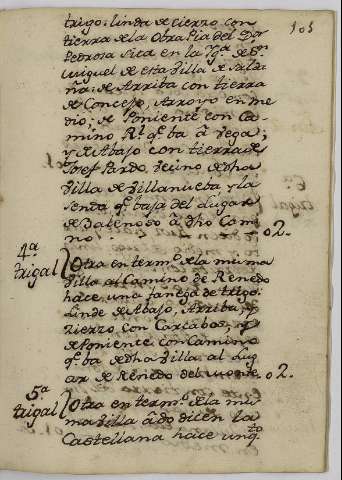 105
trigo: linda de cierzo con
tierra de la Obra Pia del Dor
Pedrosa sita en la Ygª. de Sn.
Miguel de esta Villa de Salda-
ña: de Arriba con tierra
de Concejo, Arroyo en me
dio; de Poniente con Ca-
mino Rl. qe. ba â Vega;
y de Abajo con tierra de
Josef Pardo Vecino de dha
Villa de Villanueba, y la
senda qe. baja del Lugar
de Balenoso â dho Cami
no: 02.
4ª trigal
Otra en termº. de la misma
Villa al Camino de Renedo
hace una fanega de trigo:
Linde de Abajo, Arriba, y
Zierzo con Carcabas, y
de Poniente con Camino
qe. ba de dha Villa al Lug
ar de Renedo del Monte 02.
5ª trigal
Otra en termº. de la mis
ma Villa âdo dicen la
Castellana hace un qto